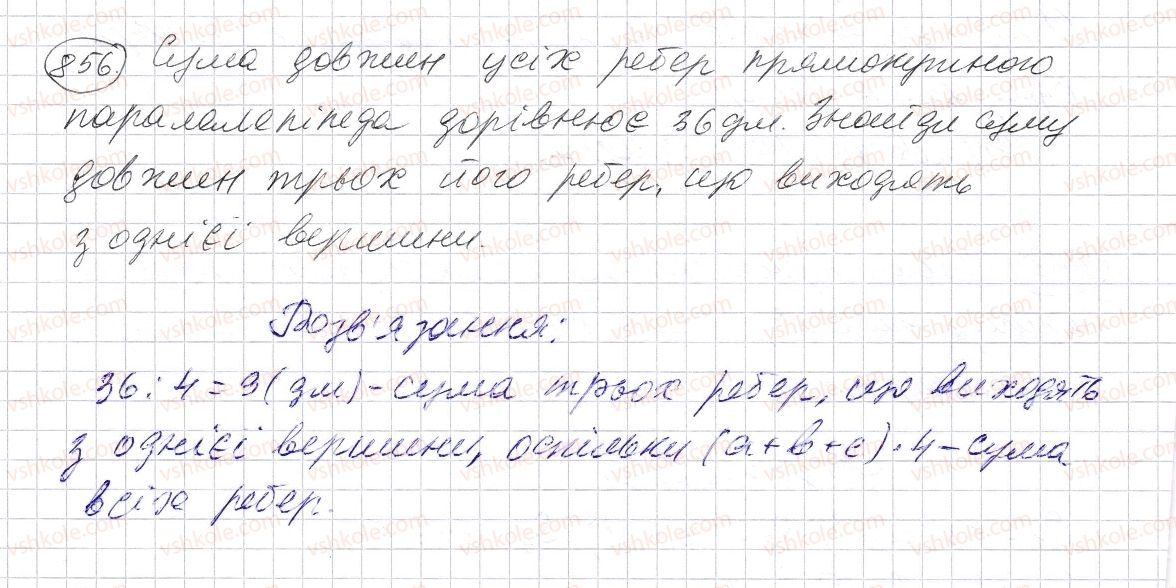 856. Сума довжин усіх ребер прямокутного
паралелепіпеда дорівнює 36 дм. Знайди суму
довжин трьох його ребер, що виходять
з однієї вершини.
Розв'язання:
36 : 4 = 9 (дм) - сума трьох ребер, що виходять
з однієї вершини, оскільки (a + b + c) · 4 - сума
всіх ребер.